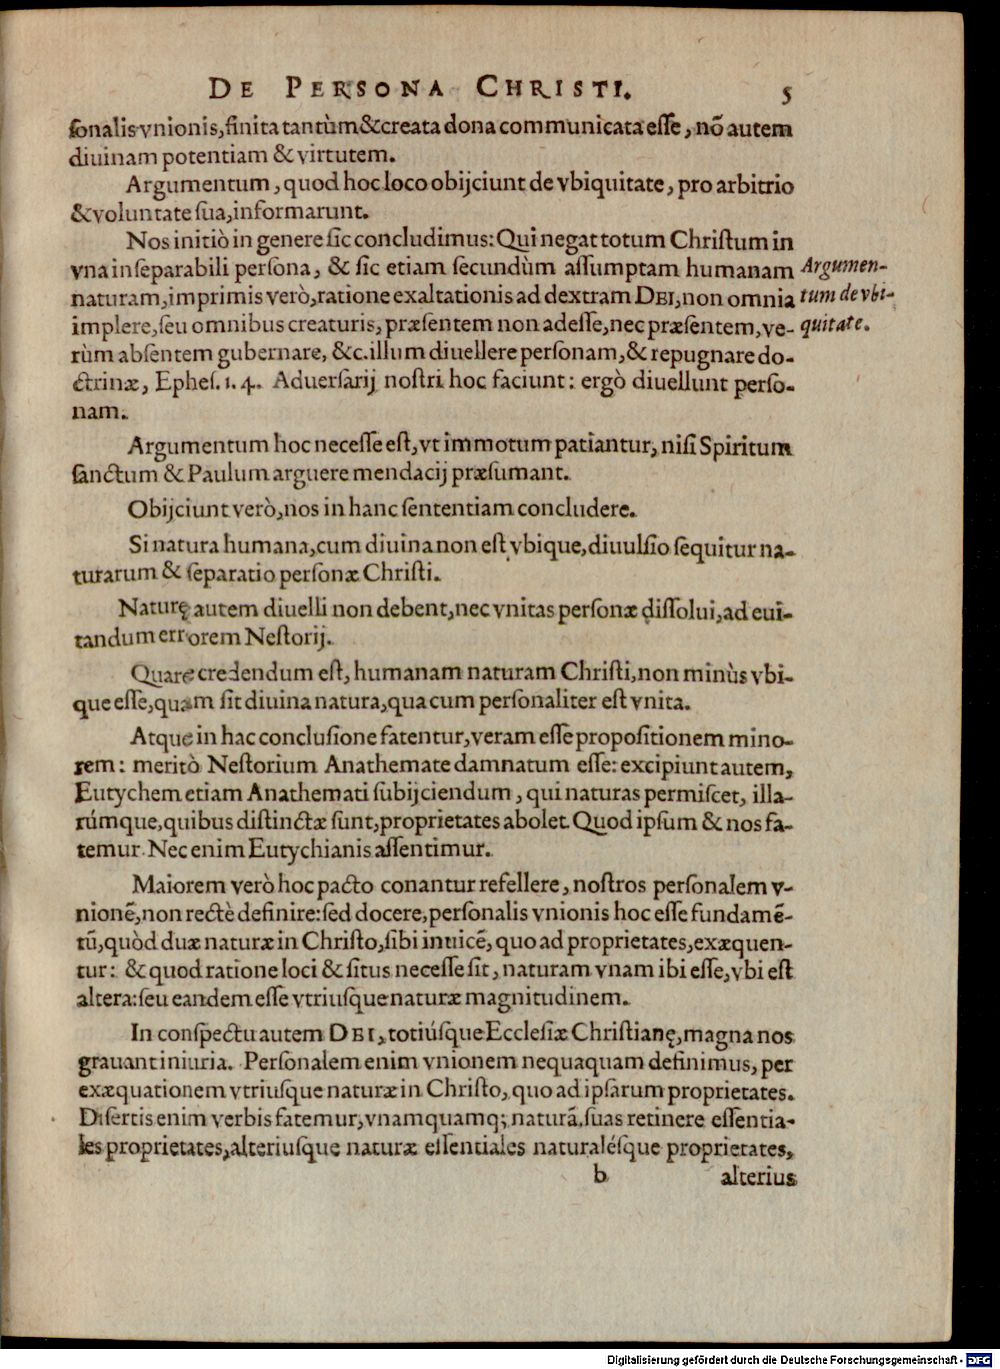 DE PERSONA CHRISTI. 5
ſonalis vnionis, finita tantùm & creata dona communicata eſſe, nõ autem
diuinam potentiam & virtutem.
Argumentum, quod hoc loco obijciunt de vbiquitate, pro arbitrio
& voluntate ſua, informarunt.
Nos initiò in genere ſic concludimus: Qui negat totum Chriſtum in
vna inſeparabili perſona, & ſic etiam ſecundùm aſſumptam humanam
naturam, imprimis verò, ratione exaltationis ad dextram DEI, non omnia
implere, ſeu omnibus creaturis, præſentem non adeſſe, nec præſentem, ve-
rùm abſentem gubernare, &c. illum diuellere perſonam, & repugnare do-
ctrinæ, Epheſ. 1. 4. Aduerſarij noſtri hoc faciunt: ergò diuellunt perſo-
nam.
Argumen-
tum de vbi-
quitate.
Argumentum hoc neceſſe eſt, vt immotum patiantur, niſi Spiritum
ſanctum & Paulum arguere mendacij præſumant.
Obijciunt verò, nos in hanc ſententiam concludere.
Si natura humana, cum diuina non eſt vbique, diuulſio ſequitur na-
turarum & ſeparatio perſonæ Chriſti.
Naturę autem diuelli non debent, nec vnitas perſonæ diſſolui, ad eui-
tandum errorem Neſtorij.
Quare credendum eſt, humanam naturam Chriſti, non minùs vbi-
que eſſe, quam ſit diuina natura, qua cum perſonaliter eſt vnita.
Atque in hac concluſione fatentur, veram eſſe propoſitionem mino-
rem: meritò Neſtorium Anathemate damnatum eſſe: excipiunt autem,
Eutychem etiam Anathemati ſubijciendum, qui naturas permiſcet, illa-
rúmque, quibus diſtinctæ ſunt, proprietates abolet. Quod ipſum & nos fa-
temur. Nec enim Eutychianis aſſentimur.
Maiorem verò hoc pacto conantur refellere, noſtros perſonalem v-
nionẽ, non rectè definire: ſed docere, perſonalis vnionis hoc eſſe fundamẽ-
tũ, quòd duæ naturæ in Chriſto, ſibi inuicẽ, quo ad proprietates, exæquen-
tur: & quod ratione loci & ſitus neceſſe ſit, naturam vnam ibi eſſe, vbi eſt
altera: ſeu eandem eſſe vtriuſque naturæ magnitudinem.
In conſpectu autem DEI, totiúſque Eccleſiæ Chriſtianę, magna nos
grauant iniuria. Perſonalem enim vnionem nequaquam definimus, per
exæquationem vtriuſque naturæ in Chriſto, quo ad ipſarum proprietates.
Diſertis enim verbis fatemur, vnamquamq; naturã, ſuas retinere eſſentia-
les proprietates, alteriuſque naturæ eſſentiales naturaléſque proprietates,
b alterius
Digitalisierung gefördert durch die Deutsche Forschungsgemeinschaft - DFG